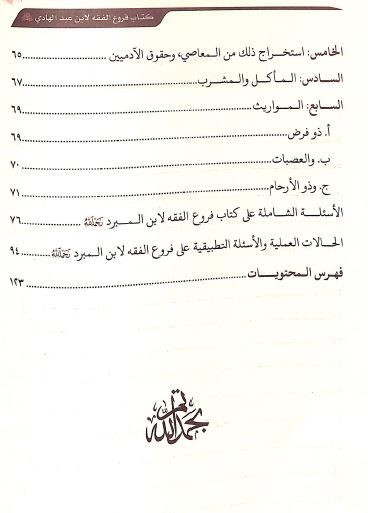 كتاب فروع الفقه لابن عبد الهادي رحمه الله
الخامس: استخراج ذلك من المعاصي، وحقوق الآدميين ............ ٦٥
السادس: المأكل والمشرب ............ ٦٧
السابع: المواريث ............ ٦٩
أ. ذو فرض ............ ٦٩
ب. والعصبات ............ ٧٠
ج. وذو الأرحام ............ ٧١
الأسئلة الشاملة على كتاب فروع الفقه لابن المبرد رحمه الله ............ ٧٦
الحالات العملية والأسئلة التطبيقية على فروع الفقه لابن المبرد رحمه الله ............ ٩٤
فهرس المحتويات ............ ١٢٣
تم بحمد الله